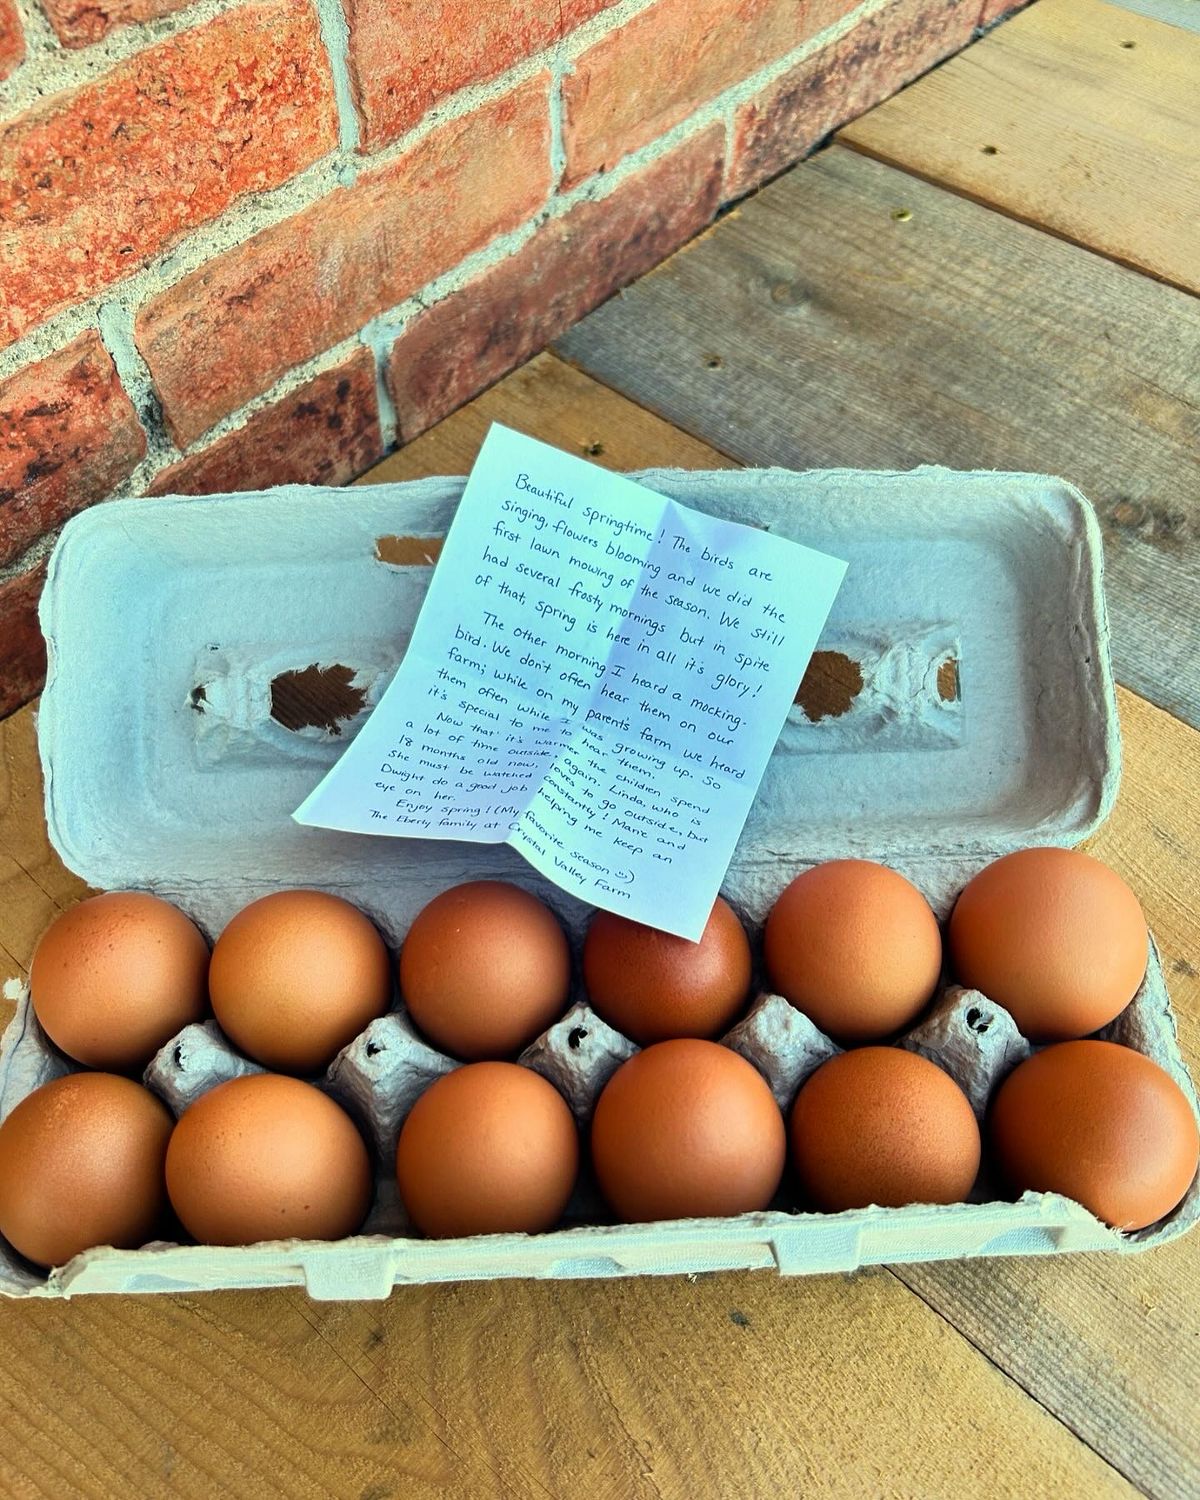 Beautiful springtime! The birds are
singing, flowers blooming and we did the
first lawn mowing of the season. We still
had several frosty mornings but in spite
of that, spring is here in all it's glory!
The other morning I heard a mocking-
bird. We don't often hear them on our
farm; while on my parents farm we heard
them often while I was growing up. So
it's special to me to hear them.
Now that it's warmer the children spend
a lot of time outside, again. Linda, who is
18 months old now, loves to go outside, but
She must be watched constantly! Marie and
Dwight do a good job helping me keep an
eye on her.
Enjoy spring! (My favorite season ☺)
The Eberly family at Crystal Valley Farm